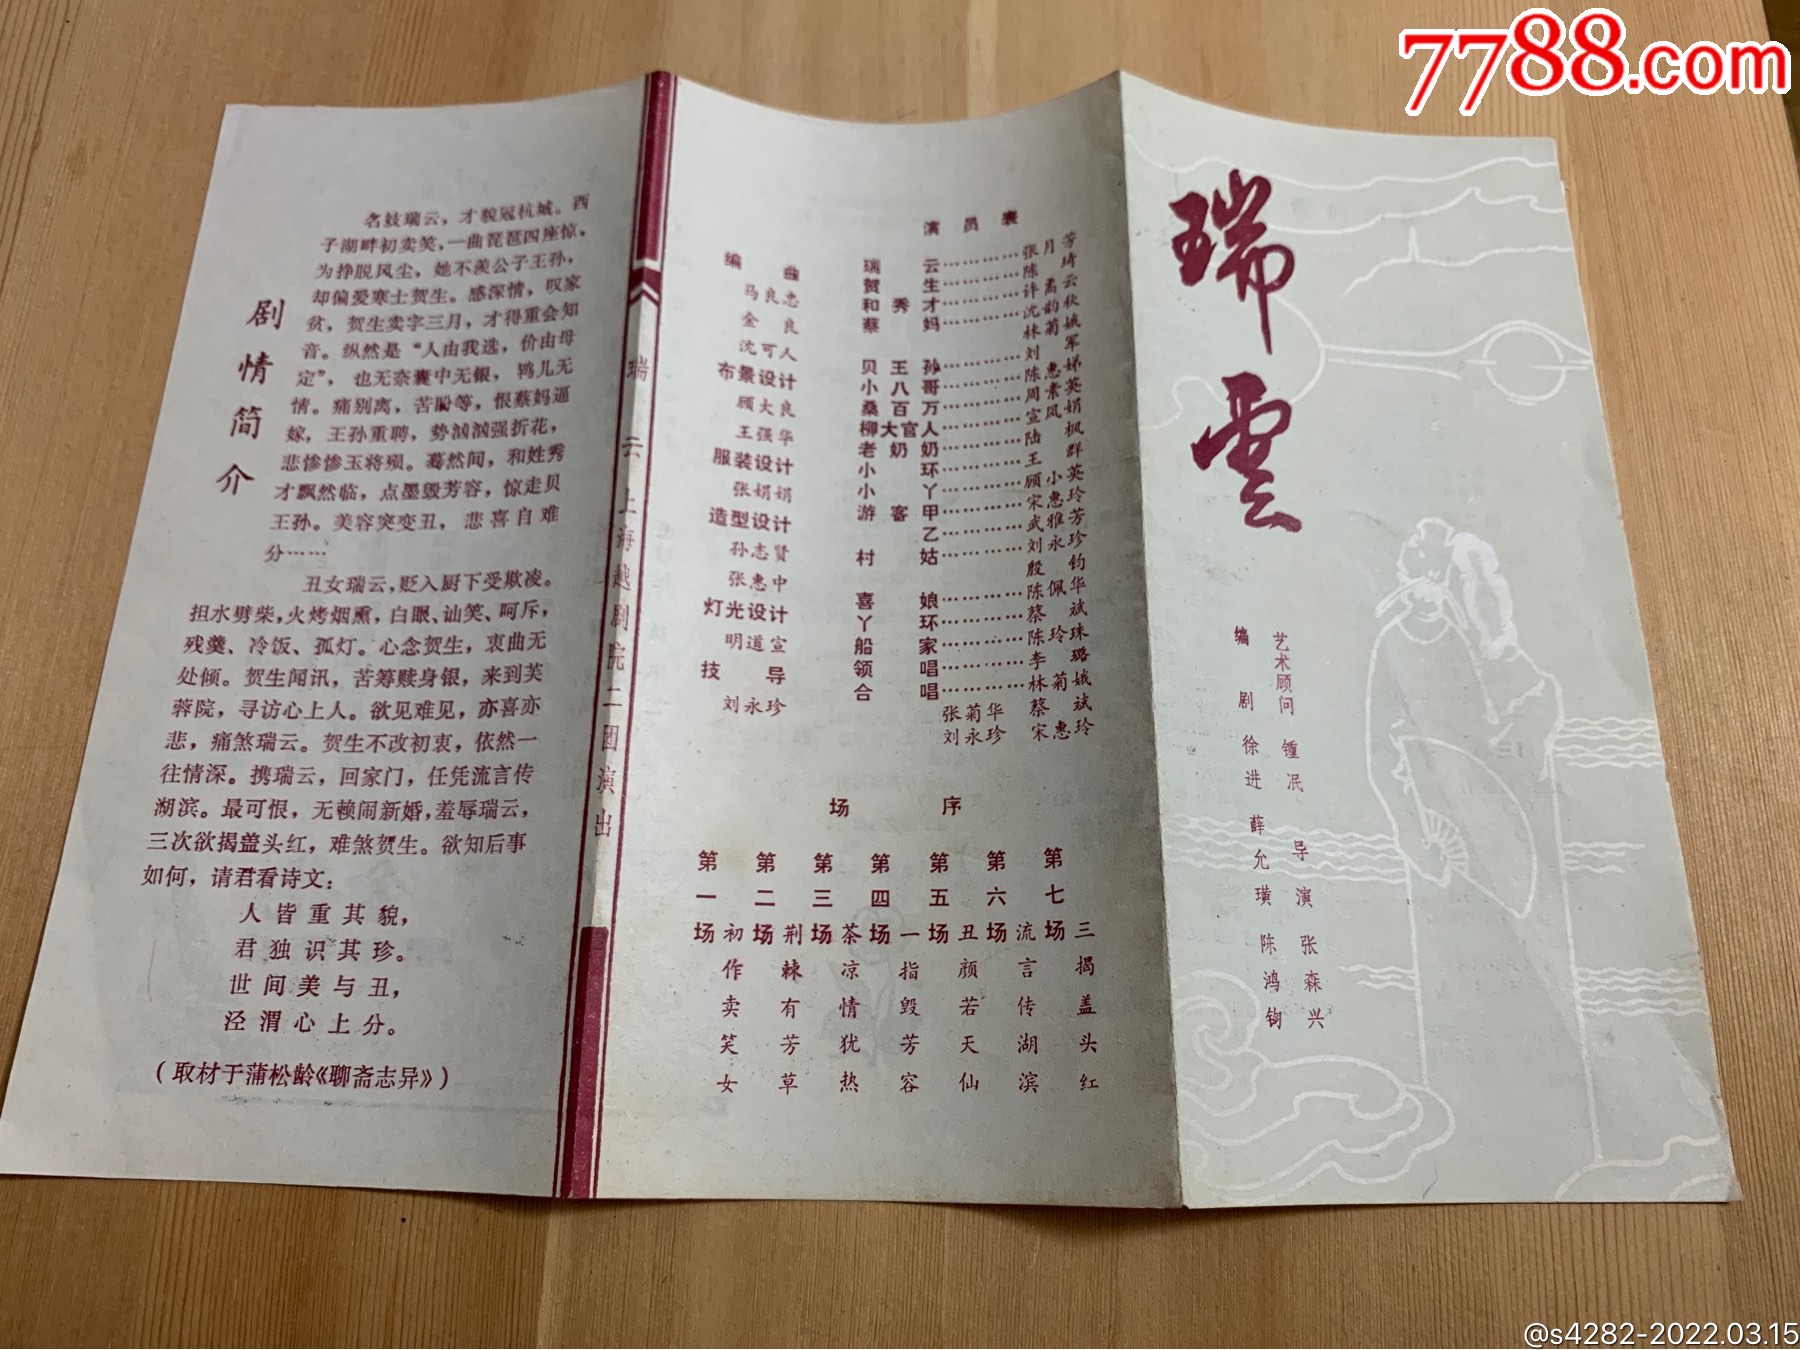 7788.com
剧情简介
名妓瑞云，才貌冠杭城。西
子湖畔初卖笑，一曲琵琶四座惊。
为挣脱风尘，她不羡公子王孙，
却偏爱寒士贺生。感深情，叹家
贫，贺生卖字三月，才得重会知
音。纵然是“人由我选，价由母
定”，也无奈囊中无银，鸨儿无
情。痛别离，苦盼等，恨蔡妈逼
嫁，王孙重聘，势汹汹强折花，
悲惨惨玉将殒。蓦然间，和姓秀
才飘然临，点墨毁芳容，惊走贝
王孙。美容突变丑，悲喜自难
分……
丑女瑞云，贬入厨下受欺凌。
担水劈柴，火烤烟熏，白眼、讪笑、呵斥，
残羹、冷饭、孤灯。心念贺生，衷曲无
处倾。贺生闻讯，苦筹赎身银，来到芙
蓉院，寻访心上人。欲见难见，亦喜亦
悲，痛煞瑞云。贺生不改初衷，依然一
往情深。携瑞云，回家门，任凭流言传
湖滨。最可恨，无赖闹新婚，羞辱瑞云，
三次欲揭盖头红，难煞贺生。欲知后事
如何，请君看诗文：
人皆重其貌，
君独识其珍。
世间美与丑，
泾渭心上分。
（取材于蒲松龄《聊斋志异》）
瑞云 上海越剧院二团演出
编曲
马良忠
金良
沈可人
布景设计
顾大良
王强华
服装设计
张娟娟
造型设计
孙志贤
张惠中
灯光设计
明道宣
技导
刘永珍
演员表
瑞云…………张月芳
贺生…………陈琦
和秀才…………许云
蔡妈…………沈韵秋
林菊娥
贝王孙…………刘军
小八哥…………陈惠娣
桑百万…………周素英
柳大官人…………宣凤娟
老奶奶…………陆枫
小环…………王群
小丫…………顾小英
游客甲…………宋惠玲
乙…………武雅芳
村姑…………刘永珍
殷钧
喜娘…………陈佩华
丫环…………蔡斌
船家…………陈玲珠
领唱…………李璐
合唱…………林菊娥
张菊华 蔡斌
刘永珍 宋惠玲
场序
第一场 初作卖笑女
第二场 荆棘有芳草
第三场 茶凉情犹热
第四场 一指毁芳容
第五场 丑颜若天仙
第六场 流言传湖滨
第七场 三揭盖头红
瑞雲
艺术顾问 锺泯
导演 张森兴
编剧 徐进 薛允璜 陈鸿钧
@s4282-2022.03.15